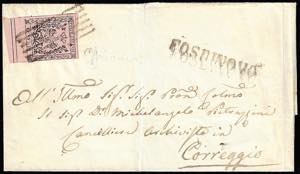 FOSDINOVO
All' Illmo Sigr. Sigr. Pron Colmo
Il Sigr. Dr. Michelangelo
Cancelliere Archivista in
Correggio